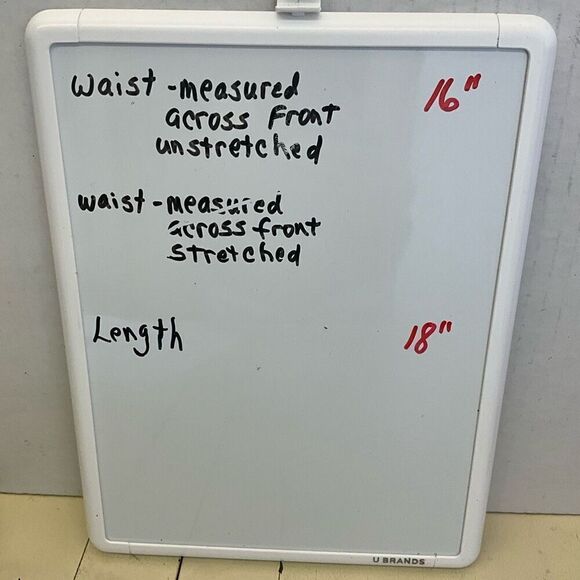 Waist - measured 16"
across Front
unstretched
waist - measured
across front
stretched
Length 18"
U BRANDS